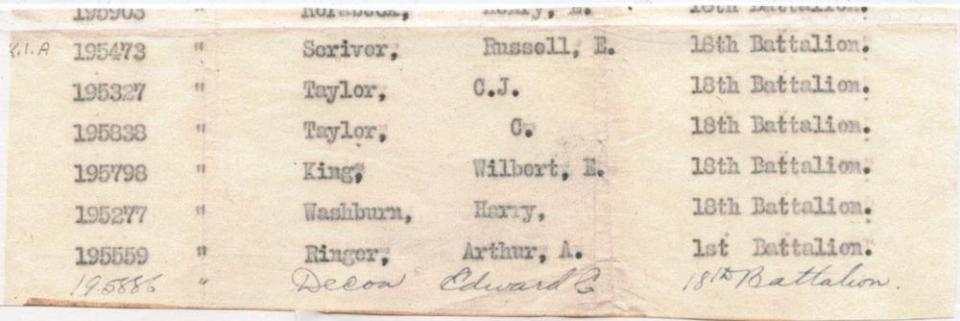 195903 " Henry, E. 18th Battalion.
K.I.A 195473 " Scriver, Russell, E. 18th Battalion.
195327 " Taylor, C.J. 18th Battalion.
195838 " Taylor, C. 18th Battalion.
195798 " King, Wilbert, E. 18th Battalion.
195277 " Washburn, Harry, 18th Battalion.
195559 " Ringer, Arthur, A. 1st Battalion.
195886 " Decon Edward E 18th Battalion.